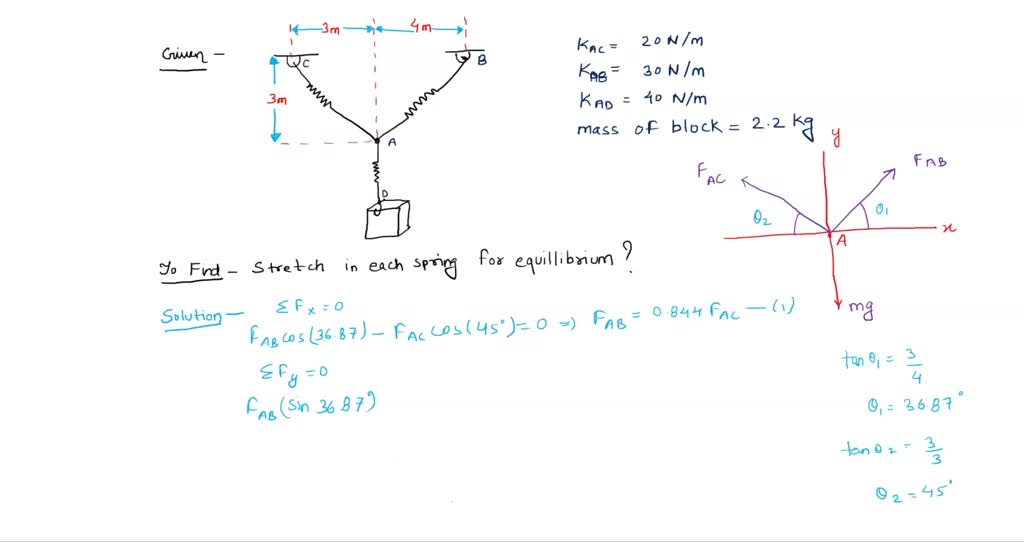 Given -
3m
4m
C
B
3m
A
D
K_AC = 20 N/m
K_AB = 30 N/m
K_AD = 40 N/m
mass of block = 2.2 kg
y
F_AC
F_AB
θ2
θ1
x
A
mg
To Find - Stretch in each spring for equillibrium ?
Solution - ΣF_x = 0
F_AB cos(36.87) - F_AC cos(45°) = 0 ⇒ F_AB = 0.844 F_AC - (1)
ΣF_y = 0
F_AB (Sin 36.87°)
tan θ1 = 3/4
θ1 = 36.87°
tan θ2 = 3/3
θ2 = 45°